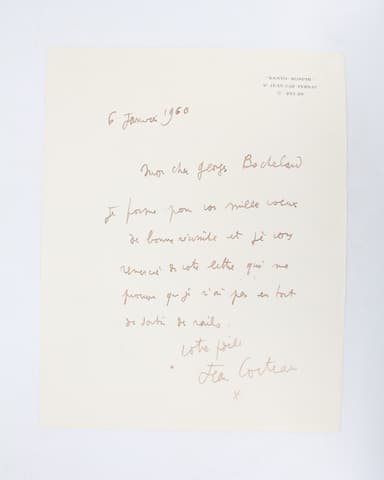 "SANTO-SOSPIR"
St JEAN-CAP-FERRAT
6 Janvier 1960
Mon cher Georges
Je forme pour vos mille vœux
de bonne réussite et je vous
remercie de votre lettre qui me
prouve que je n'ai pas eu tort
de sortir de rails.
votre fidèle
Jean Cocteau
*